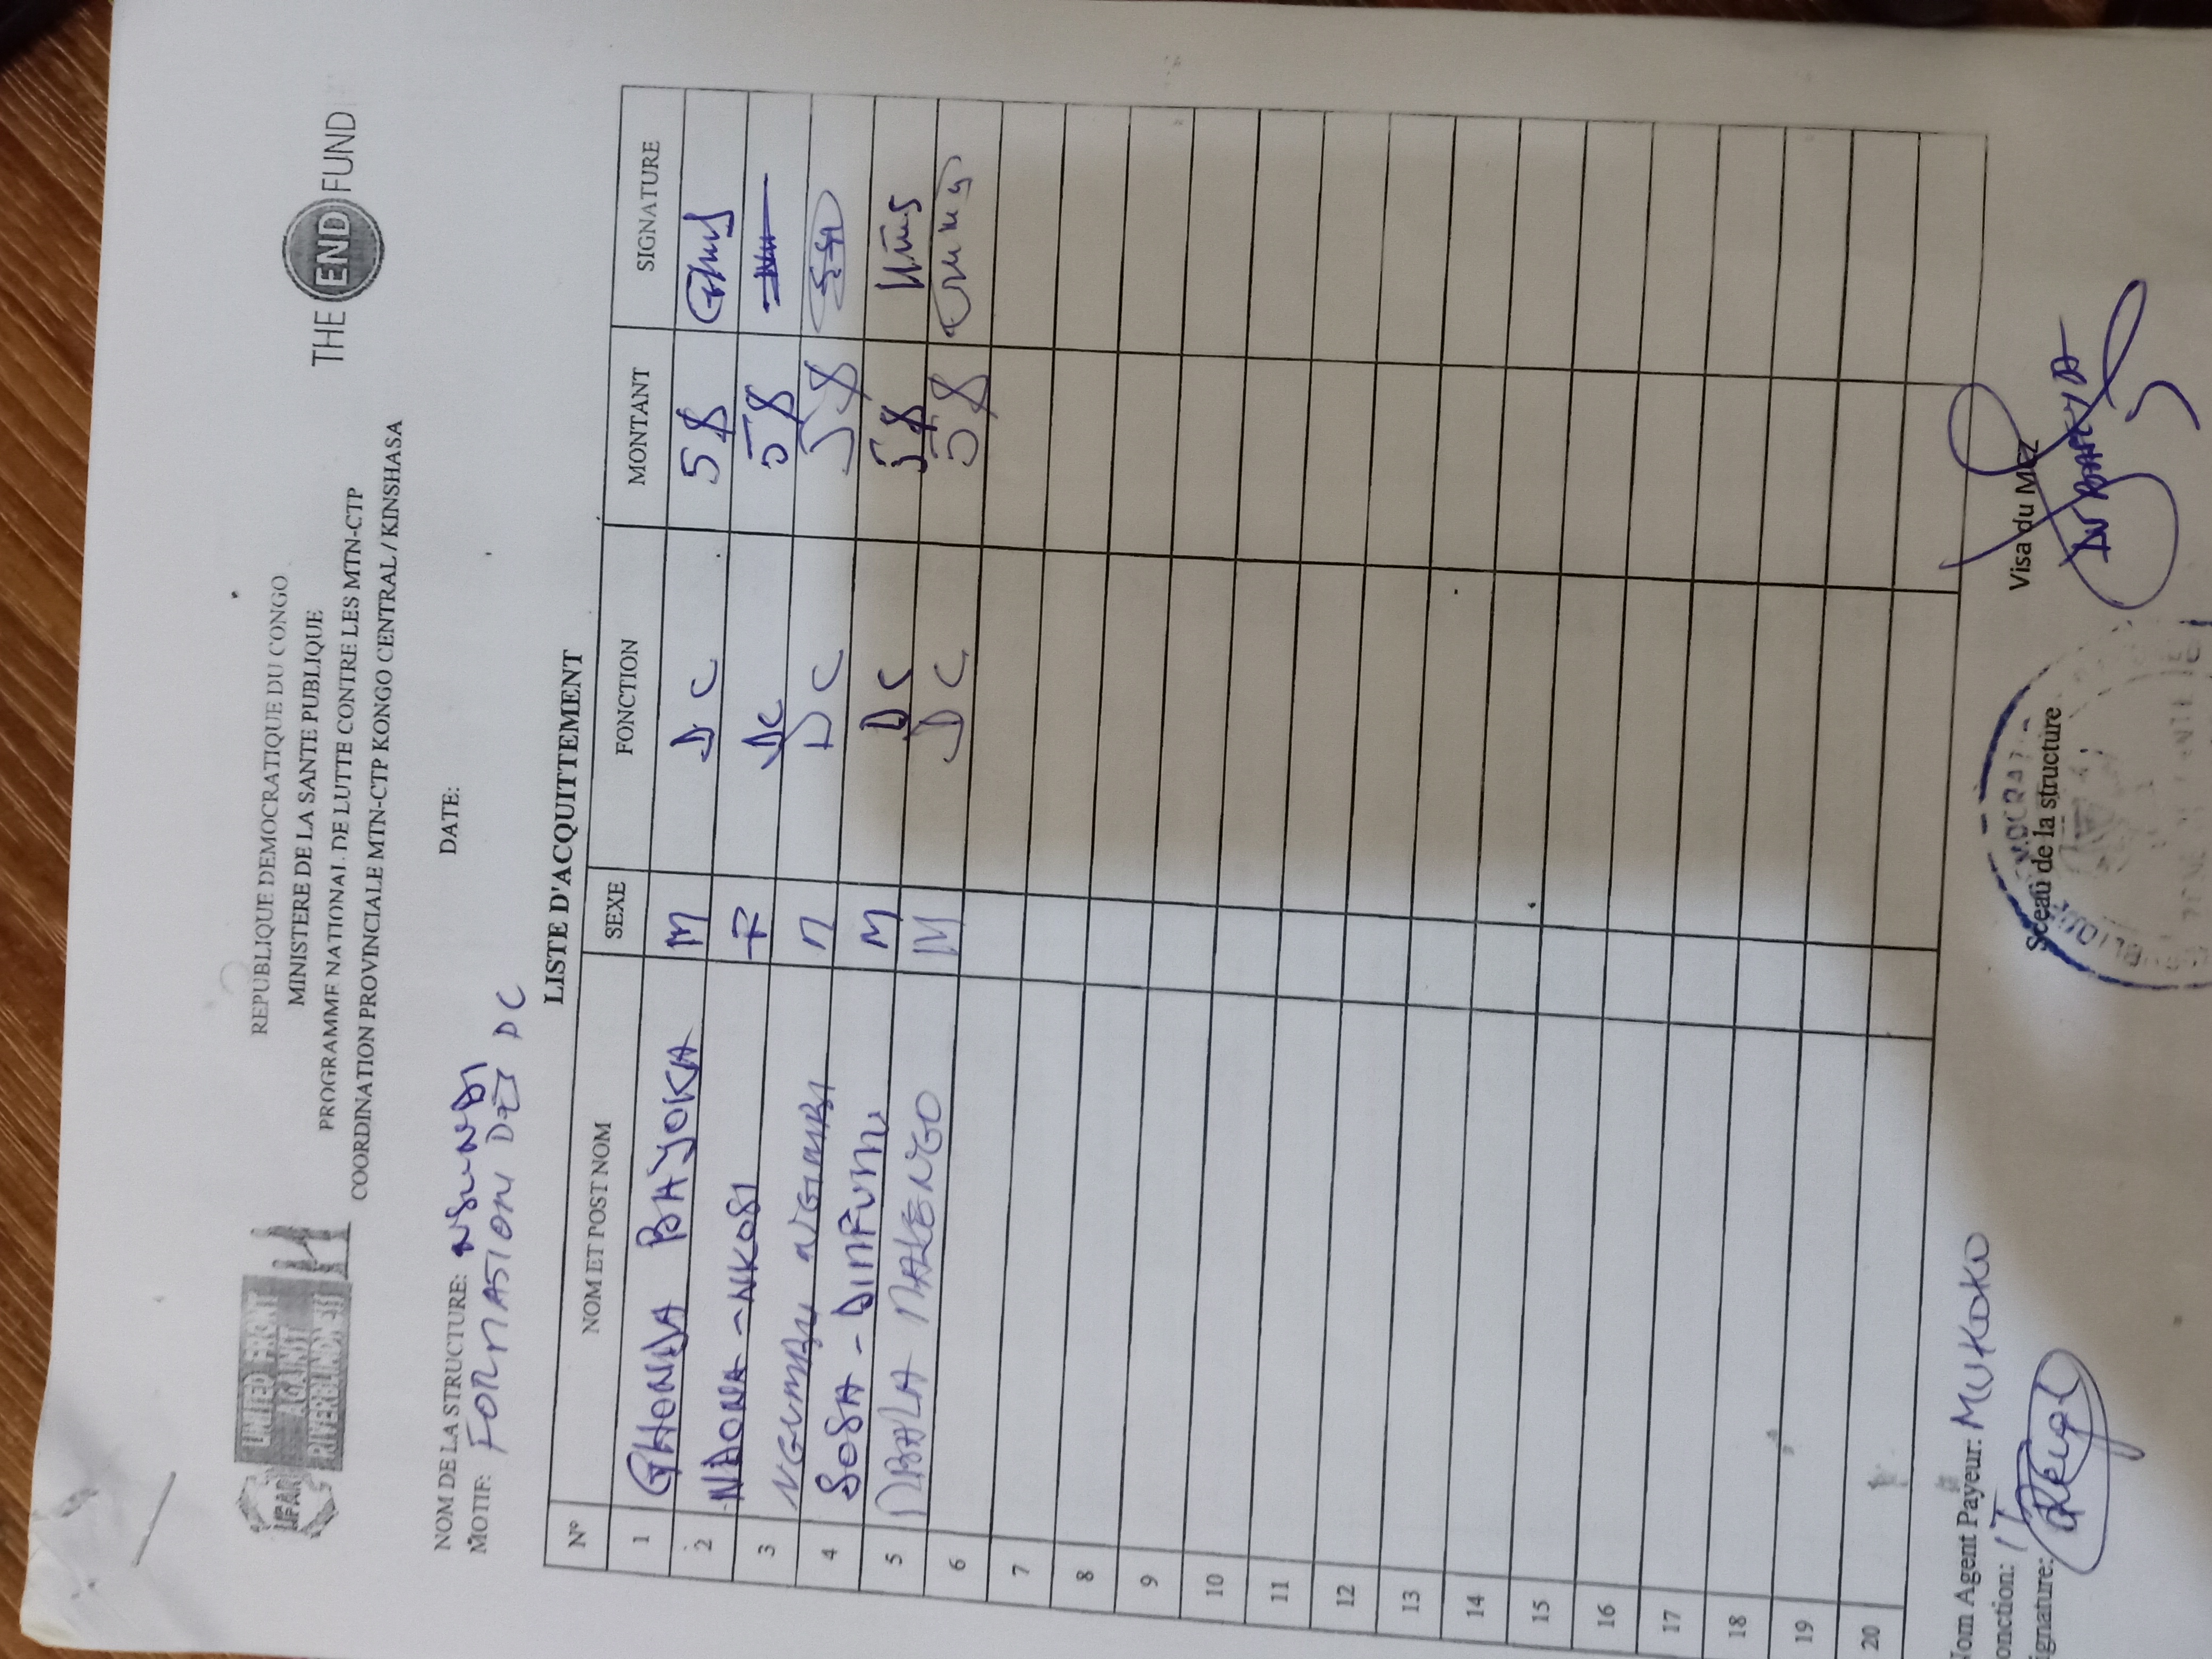 UNITED FRONT
AGAINT
RIVERBLINDNESS
UFAR
REPUBLIQUE DEMOCRATIQUE DU CONGO
MINISTERE DE LA SANTE PUBLIQUE
PROGRAMME NATIONAL DE LUTTE CONTRE LES MTN-CTP
COORDINATION PROVINCIALE MTN-CTP KONGO CENTRAL / KINSHASA
THE END FUND
NOM DE LA STRUCTURE: NSUNDI
DATE:
MOTIF: FORMATION DES DC
LISTE D'ACQUITTEMENT
N° NOM ET POST NOM SEXE FONCTION MONTANT SIGNATURE
1 BAYOKA M DC 5$
2 NDONA - NKOSI F DC 5$
3 NGUMBU NGIMBI M DC 5$
4 SOSA - DINFUMU M DC 5$
5 MBALA MALENGO M DC 5$
6
7
8
9
10
11
12
13
14
15
16
17
18
19
20
Nom Agent Payeur: MUKOKO
onction: IT
ignature:
Sceau de la structure
Visa du MCZ